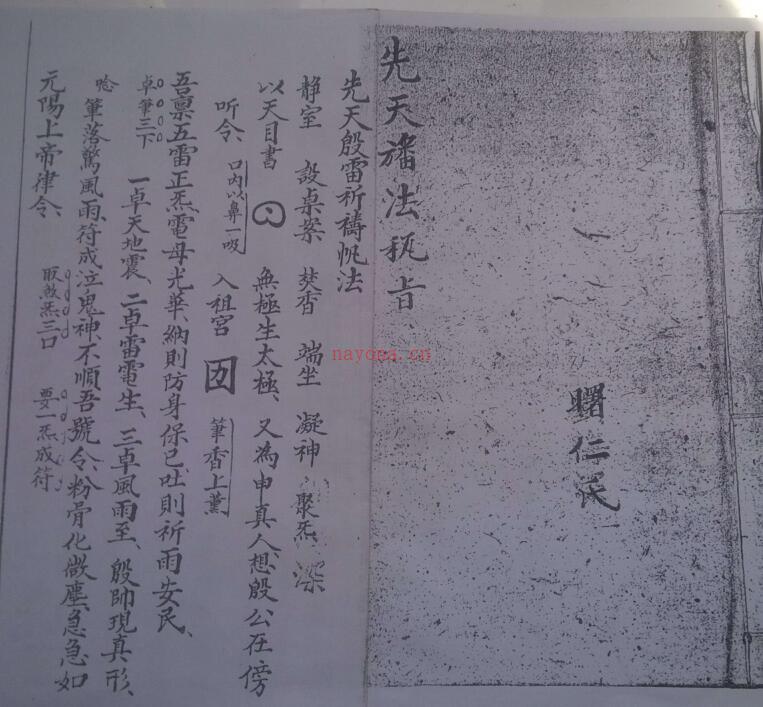 先天旛法秘旨
曙仁氏
先天殷雷祈禱帆法
静室 設桌案 焚香 端坐 凝神 聚炁 深
以天目書 無極生太極、又為申真人想殷公在傍
听令、口内以鼻一吸 入祖宫 筆香上薰
吾禀五雷正炁、電母光華、納則防身保己、吐則祈雨安民、
卓筆三下 一卓天地震、二卓雷電生、三卓風雨至、殷帥現真形、
唸 筆落驚風雨、符成泣鬼神、不順吾號令、粉骨化微塵、急急如
元陽上帝律令、 取煞炁三口 要一炁成符
nayona.cn